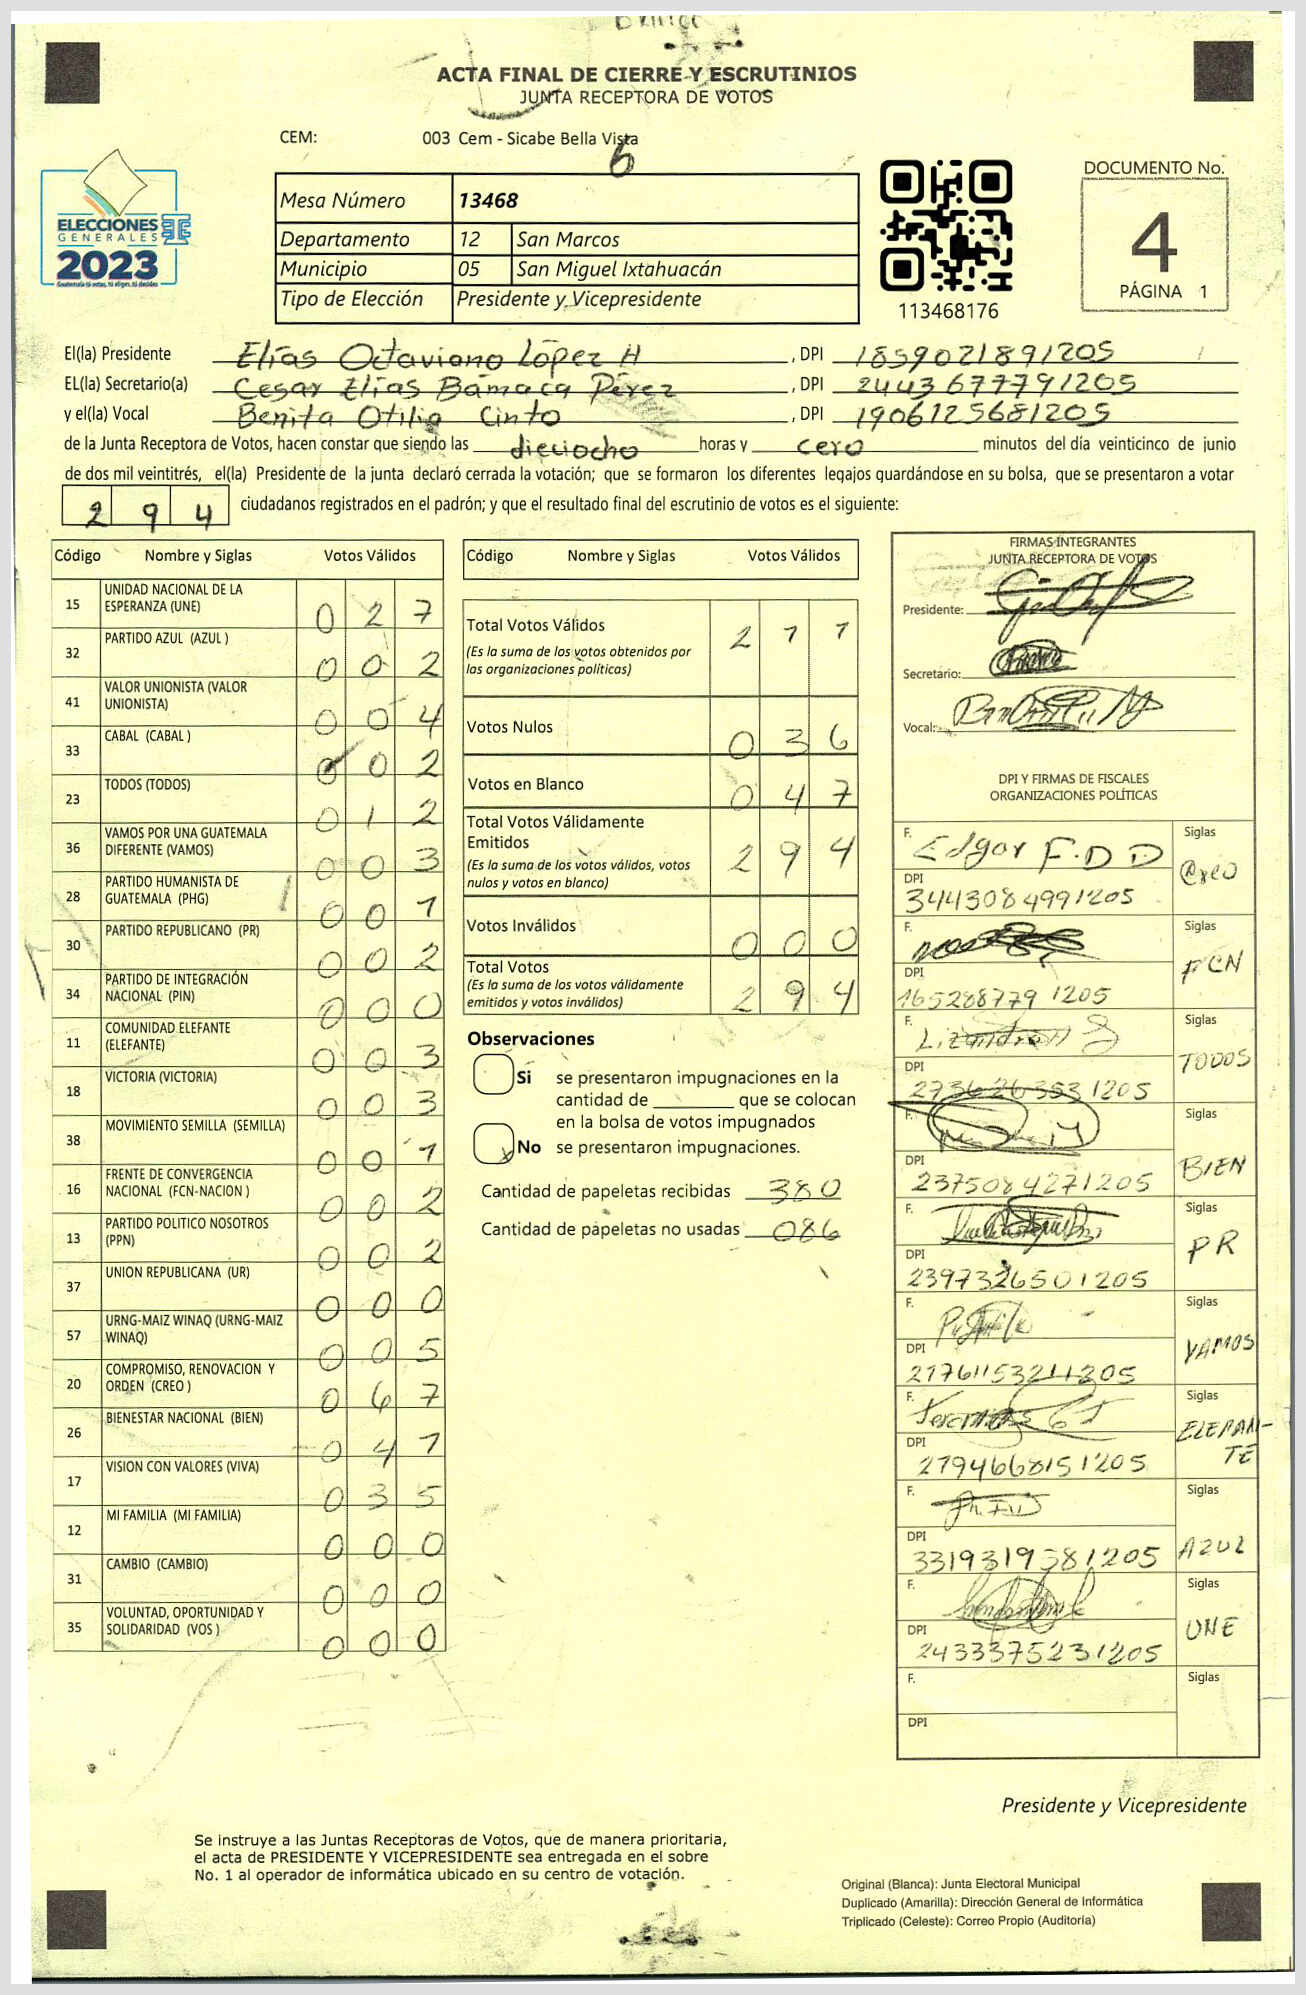 ACTA FINAL DE CIERRE Y ESCRUTINIOS
JUNTA RECEPTORA DE VOTOS
CEM: 003 Cem - Sicabe Bella Vista
6
ELECCIONES
GENERALES
2023
Guatemala tú votas, tú eliges, tú decides
Mesa Número 13468
Departamento 12 San Marcos
Municipio 05 San Miguel Ixtahuacán
Tipo de Elección Presidente y Vicepresidente
113468176
DOCUMENTO No.
4
PÁGINA 1
El(la) Presidente Elías Octaviano López H , DPI 1859021891205
EL(la) Secretario(a) Cesar Elías Bámaca Pérez , DPI 2443677791205
y el(la) Vocal Benita Otilia Cinto , DPI 1906125681205
de la Junta Receptora de Votos, hacen constar que siendo las dieciocho horas y cero minutos del día veinticinco de junio
de dos mil veintitrés, el(la) Presidente de la junta declaró cerrada la votación; que se formaron los diferentes legajos guardándose en su bolsa, que se presentaron a votar
2 9 4 ciudadanos registrados en el padrón; y que el resultado final del escrutinio de votos es el siguiente:
Código Nombre y Siglas Votos Válidos
15 UNIDAD NACIONAL DE LA ESPERANZA (UNE) 0 2 7
32 PARTIDO AZUL (AZUL ) 0 0 2
41 VALOR UNIONISTA (VALOR UNIONISTA) 0 0 4
33 CABAL (CABAL ) 0 0 2
23 TODOS (TODOS) 0 1 2
36 VAMOS POR UNA GUATEMALA DIFERENTE (VAMOS) 0 0 3
28 PARTIDO HUMANISTA DE GUATEMALA (PHG) 0 0 1
30 PARTIDO REPUBLICANO (PR) 0 0 2
34 PARTIDO DE INTEGRACIÓN NACIONAL (PIN) 0 0 0
11 COMUNIDAD ELEFANTE (ELEFANTE) 0 0 3
18 VICTORIA (VICTORIA) 0 0 3
38 MOVIMIENTO SEMILLA (SEMILLA) 0 0 1
16 FRENTE DE CONVERGENCIA NACIONAL (FCN-NACION ) 0 0 2
13 PARTIDO POLITICO NOSOTROS (PPN) 0 0 2
37 UNION REPUBLICANA (UR) 0 0 0
57 URNG-MAIZ WINAQ (URNG-MAIZ WINAQ) 0 0 5
20 COMPROMISO, RENOVACION Y ORDEN (CREO ) 0 6 7
26 BIENESTAR NACIONAL (BIEN) 0 4 1
17 VISION CON VALORES (VIVA) 0 3 5
12 MI FAMILIA (MI FAMILIA) 0 0 0
31 CAMBIO (CAMBIO) 0 0 0
35 VOLUNTAD, OPORTUNIDAD Y SOLIDARIDAD (VOS ) 0 0 0
Código Nombre y Siglas Votos Válidos
Total Votos Válidos 2 1 1
(Es la suma de los votos obtenidos por
las organizaciones políticas)
Votos Nulos 0 3 6
Votos en Blanco 0 4 7
Total Votos Válidamente
Emitidos 2 9 4
(Es la suma de los votos válidos, votos
nulos y votos en blanco)
Votos Inválidos 0 0 0
Total Votos 2 9 4
(Es la suma de los votos válidamente
emitidos y votos inválidos)
Observaciones
Si se presentaron impugnaciones en la
cantidad de ________ que se colocan
en la bolsa de votos impugnados
x No se presentaron impugnaciones.
Cantidad de papeletas recibidas 380
Cantidad de papeletas no usadas 086
FIRMAS INTEGRANTES
JUNTA RECEPTORA DE VOTOS
Presidente:
Secretario:
Vocal:
DPI Y FIRMAS DE FISCALES
ORGANIZACIONES POLÍTICAS
F. Edgar F.D D Siglas Creo
DPI 3443084991205
F. Siglas FCN
DPI 1652887791205
F. Siglas TODOS
DPI 2736263531205
F. Siglas BIEN
DPI 2375084271205
F. Siglas PR
DPI 2397326501205
F. Siglas VAMOS
DPI 2176115321205
F. Siglas ELEFAN-
TE
DPI 2794668151205
F. Siglas AZUL
DPI 3319319581205
F. Siglas UNE
DPI 2433375231205
F. Siglas
DPI
Presidente y Vicepresidente
Se instruye a las Juntas Receptoras de Votos, que de manera prioritaria,
el acta de PRESIDENTE Y VICEPRESIDENTE sea entregada en el sobre
No. 1 al operador de informática ubicado en su centro de votación.
Original (Blanca): Junta Electoral Municipal
Duplicado (Amarilla): Dirección General de Informática
Triplicado (Celeste): Correo Propio (Auditoría)